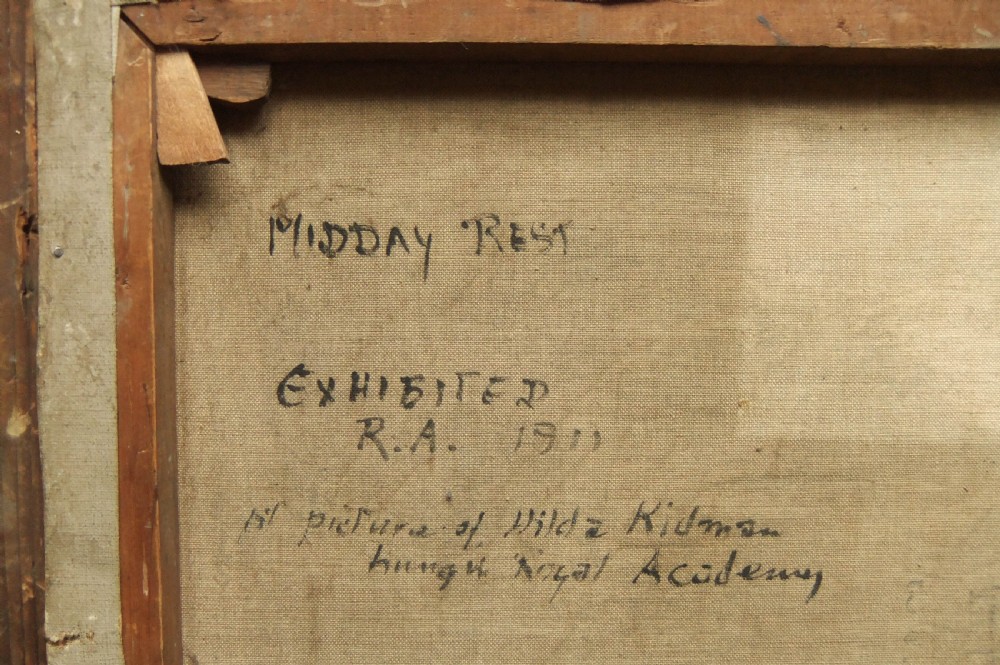 MIDDAY REST
EXHIBITED
R.A. 1911
1st picture of Hilda Kidman
hung in Royal Academy